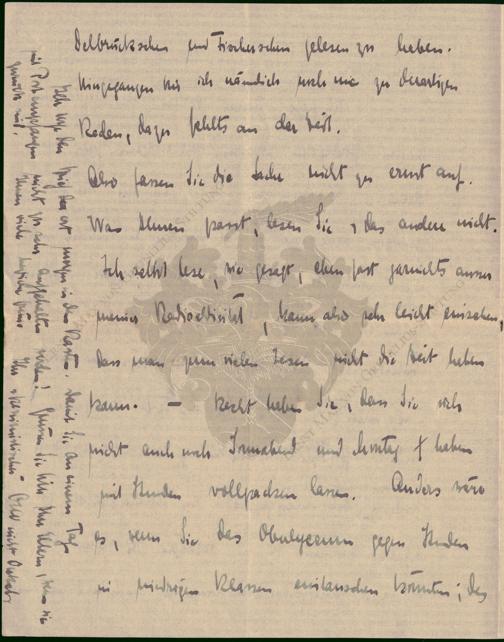 Delbrückschen und Fischerschen gelesen zu haben.
Hingegangen bin ich nämlich noch nie zu derartigen
Reden, dazu fehlts an der Zeit.
Also fassen Sie die Sache nicht zu ernst auf.
Was Ihnen passt, lesen Sie, das andere nicht.
Ich selbst lese, wie gesagt, eben fast garnichts ausser
meiner Radioaktivität, kann also sehr leicht einsehen,
dass man zum vielen Lesen nicht die Zeit haben
kann. – Recht haben Sie, dass Sie sich
nicht auch noch Sonnabend und Montag haben
mit Stunden vollpacken lassen. Anders wäre
es, wenn Sie das Oberlyceum gegen Stunden
in niedrigen Klassen eintauschen könnten; das
Ich den Brief erst morgen in den Kasten, damit Sie an einem Tag
mit Post nicht zu sehr werden! Grüßen Sie bitte Ihre Eltern, wenn sie
Ihnen viele herzliche Grüße Ihr Otto